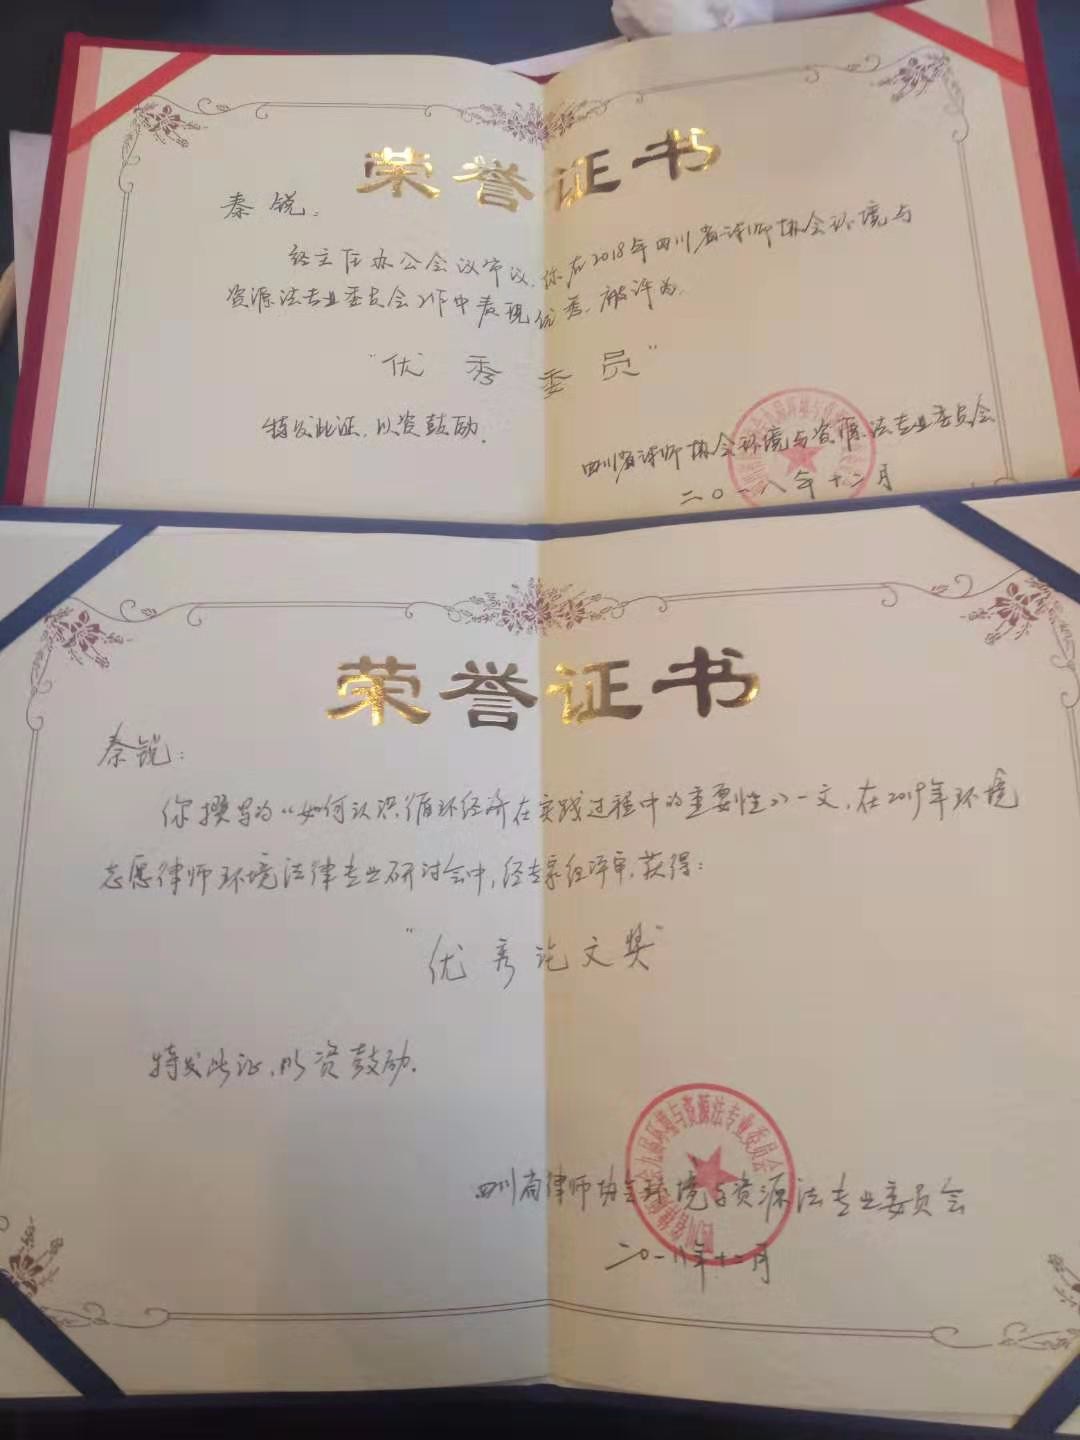 荣誉证书
秦锐：
经主任办公会议审议，你在2018年四川省律师协会环境与
资源法专业委员会工作中表现优秀，被评为：
"优秀委员"
特发此证，以资鼓励。
四川省律师协会环境与资源法专业委员会
二〇一八年十二月
荣誉证书
秦锐：
你撰写的《如何认识循环经济在实践过程中的重要性》一文，在2019年环境
志愿律师环境法律专业研讨会中，经专家组评审，获得：
"优秀论文奖"
特发此证，以资鼓励。
四川省律师协会环境与资源法专业委员会
二〇一八年十二月